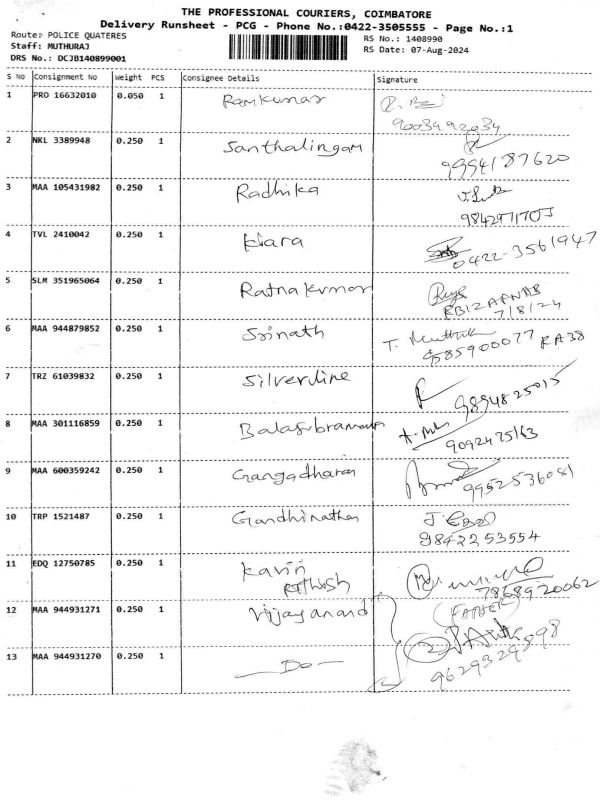 THE PROFESSIONAL COURIERS, COIMBATORE
Delivery Runsheet - PCG - Phone No.:0422-3505555 - Page No.:1
Route: POLICE QUATERES
RS No.: 1408990
Staff: MUTHURAJ
RS Date: 07-Aug-2024
DRS No.: DCJB140899001
S No Consignment No Weight PCS Consignee Details Signature
1 PRO 16632010 0.050 1 Ramkumar
9003492034
2 NKL 3389948 0.250 1 Santhalingam
9994187620
3 MAA 105431982 0.250 1 Radhika
4 TVL 2410042 0.250 1 Kiara
0422-3561947
5 SLM 351965064 0.250 1 Ratnakumar
7/8/24
6 MAA 944879852 0.250 1 Srinath
RA38
7 TRZ 61039832 0.250 1 Silverline
9894825015
8 MAA 301116859 0.250 1
9092475163
9 MAA 600359242 0.250 1 Gangadharan
9952536081
10 TRP 1521487 0.250 1 Gandhinathan
9842253554
11 EDQ 12750785 0.250 1 Kavin
7868920062
12 MAA 944931271 0.250 1 Vijayanand
(FATHER)
13 MAA 944931270 0.250 1 — Do —
9629329898